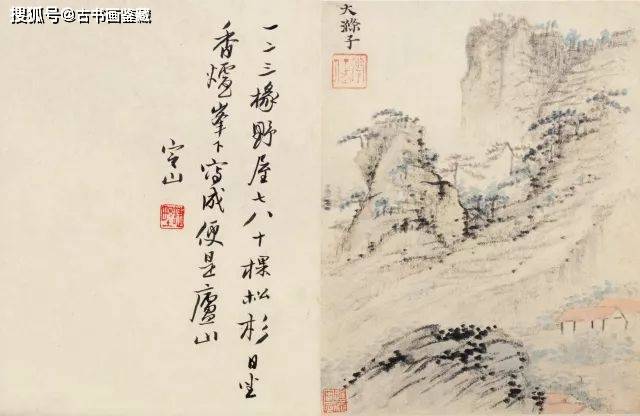 搜狐号@古书画鉴藏
大滌子
一二三椽野屋七八十棵松杉日坐
香爐峯下寫成便是廬山